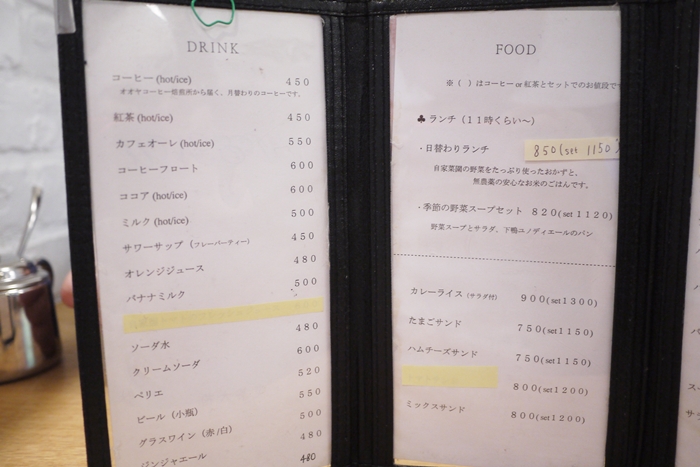 DRINK
コーヒー (hot/ice) 450
オオヤコーヒー焙煎所から届く、月替わりのコーヒーです。
紅茶 (hot/ice) 450
カフェオーレ (hot/ice) 550
コーヒーフロート 600
ココア (hot/ice) 600
ミルク (hot/ice) 500
サワーサップ (フレーバーティー) 450
オレンジジュース 480
バナナミルク 500
480
ソーダ水 600
クリームソーダ 520
ペリエ 550
ビール (小瓶) 500
グラスワイン (赤/白) 480
ジンジャエール 480
FOOD
※ ( ) はコーヒー or 紅茶とセットでのお値段で
♣ ランチ (11時くらい〜)
・日替わりランチ 850 (set 1150)
自家菜園の野菜をたっぷり使ったおかずと、
無農薬の安心なお米のごはんです。
・季節の野菜スープセット 820 (set 1120)
野菜スープとサラダ、下鴨ユノディエールのパン
カレーライス (サラダ付) 900 (set 1300)
たまごサンド 750 (set 1150)
ハムチーズサンド 750 (set 1150)
800 (set 1200)
ミックスサンド 800 (set 1200)